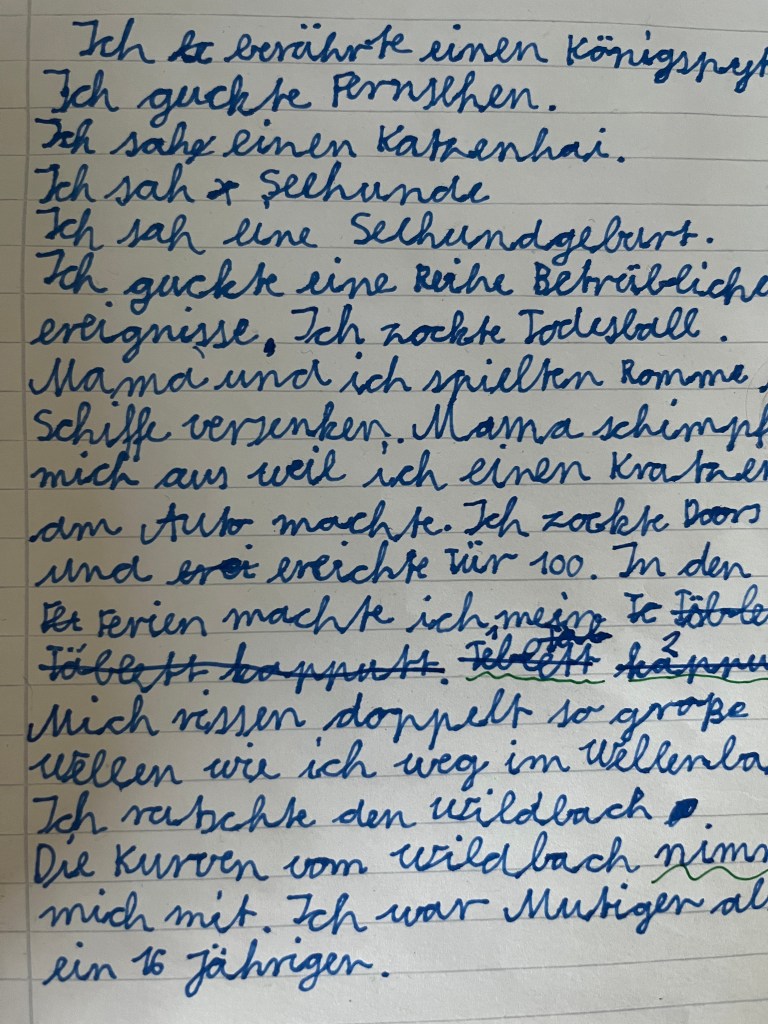 Ich berührte einen Königspyt
Ich guckte Fernsehen.
Ich sah einen Katzenhai.
Ich sah Seehunde
Ich sah eine Seehundgeburt.
Ich guckte eine Reihe Beträbliche
ereignisse. Ich zockte Todesball.
Mama und ich spielten Romme,
Schiffe versenken. Mama schimpf
mich aus weil ich einen Kratzer
am Auto machte. Ich zockte Doors
und ereichte Tür 100. In den
Ferien machte ich mein
Täblett kapputt.
Mich rissen doppelt so große
Wellen wie ich weg im Wellenba
Ich rutschte den Wildbach
Die Kurven vom Wildbach nimm
mich mit. Ich war Mutiger al
ein 16 Jährigen.